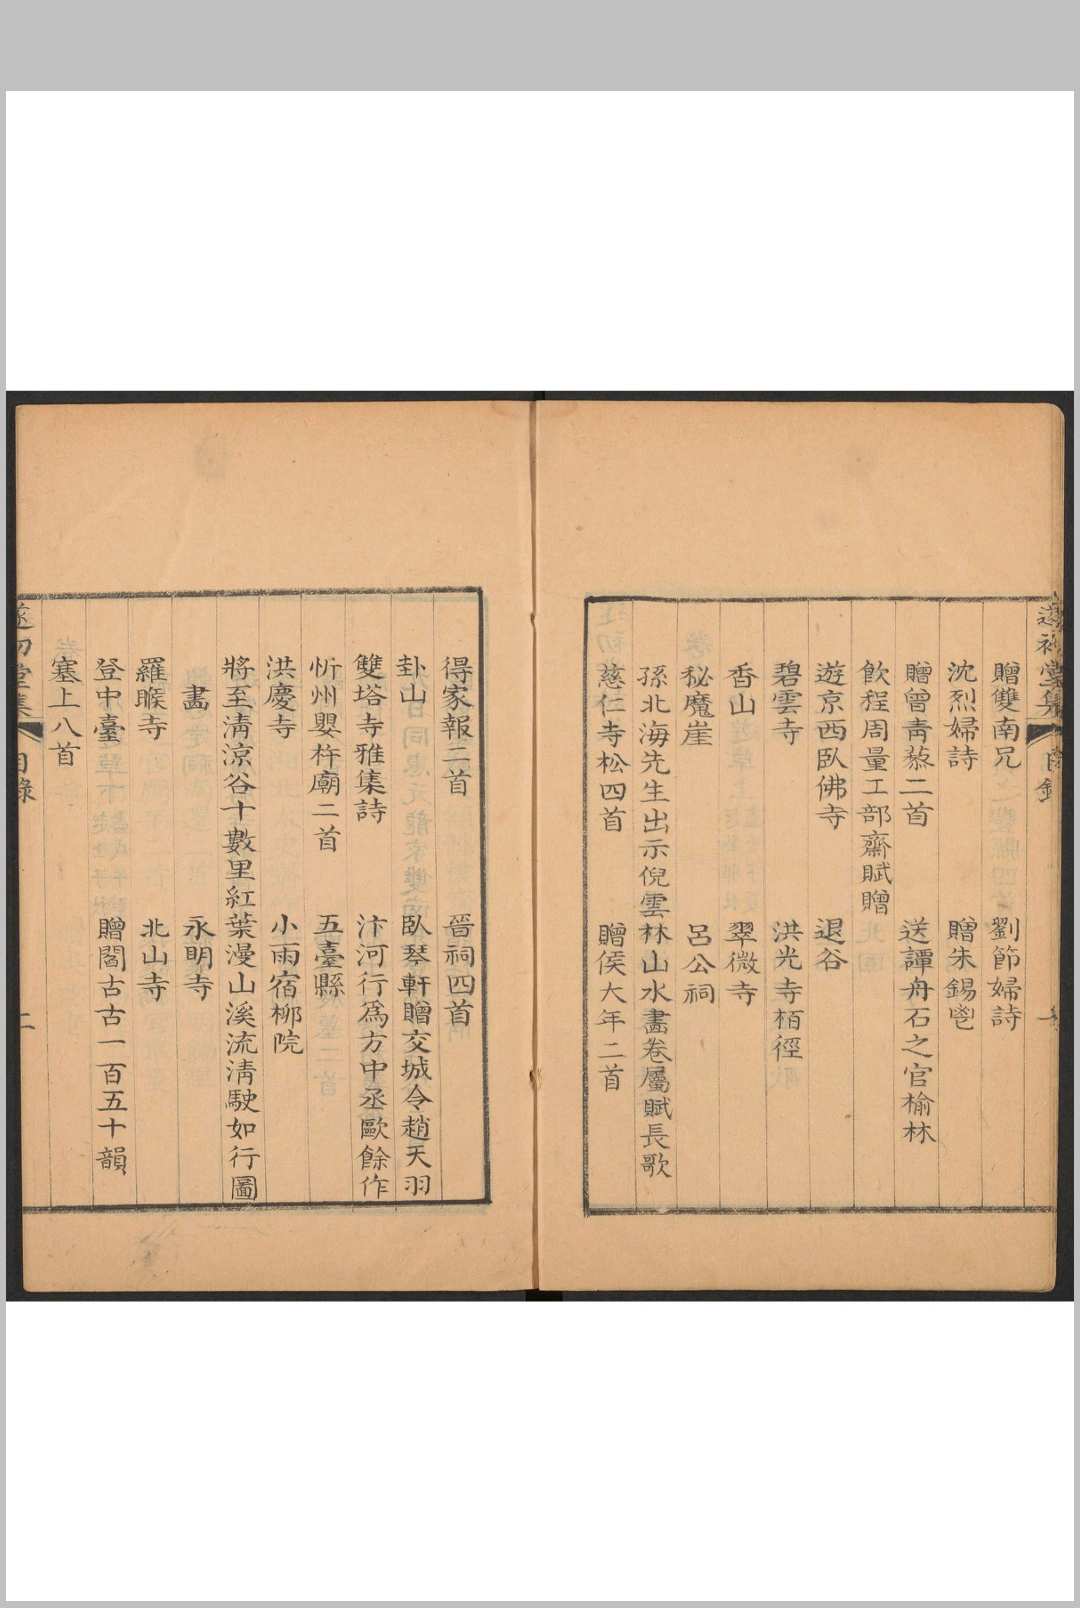 遂初堂集 目錄
贈雙南兄 劉節婦詩
沈烈婦詩 贈朱錫鬯
贈曾靑藜二首 送譚舟石之官榆林
飮程周量工部齋賦贈
遊京西臥佛寺 退谷
碧雲寺 洪光寺栢徑
香山 翠微寺
秘魔崖 呂公祠
孫北海先生出示倪雲林山水畫卷屬賦長歌
慈仁寺松四首 贈侯大年二首
得家報二首 晉祠四首
卦山 臥琴軒贈交城令趙天羽
雙塔寺雅集詩 汴河行爲方中丞歐餘作
忻州嬰杵廟二首 五臺縣
洪慶寺 小雨宿栁院
將至淸涼谷十數里紅葉漫山溪流淸駛如行圖
畫 永明寺
羅睺寺 北山寺
登中臺 贈閻古古一百五十韻
塞上八首
遂初堂集 目錄 二